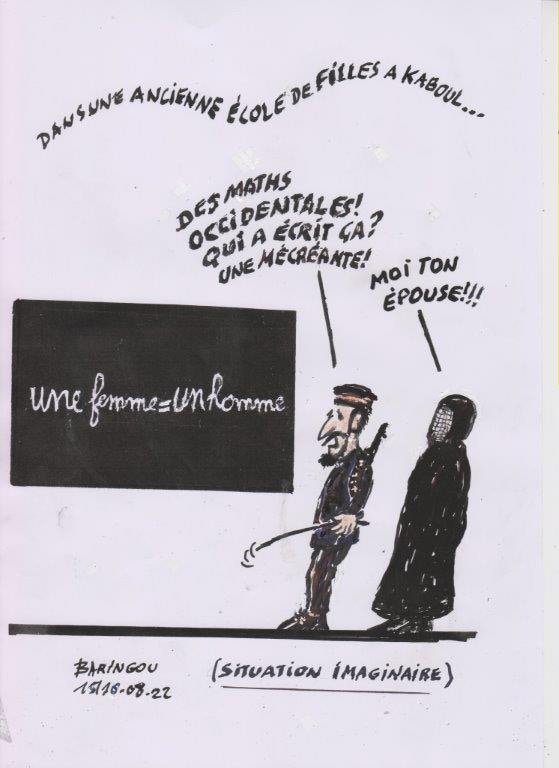 DANS UNE ANCIENNE ÉCOLE DE FILLES A KABOUL...
DES MATHS
OCCIDENTALES!
QUI A ÉCRIT ÇA?
UNE MÉCRÉANTE!
MOI TON
ÉPOUSE!!!
une femme=un homme
BARINGOU
15/16.08.22
(SITUATION IMAGINAIRE)